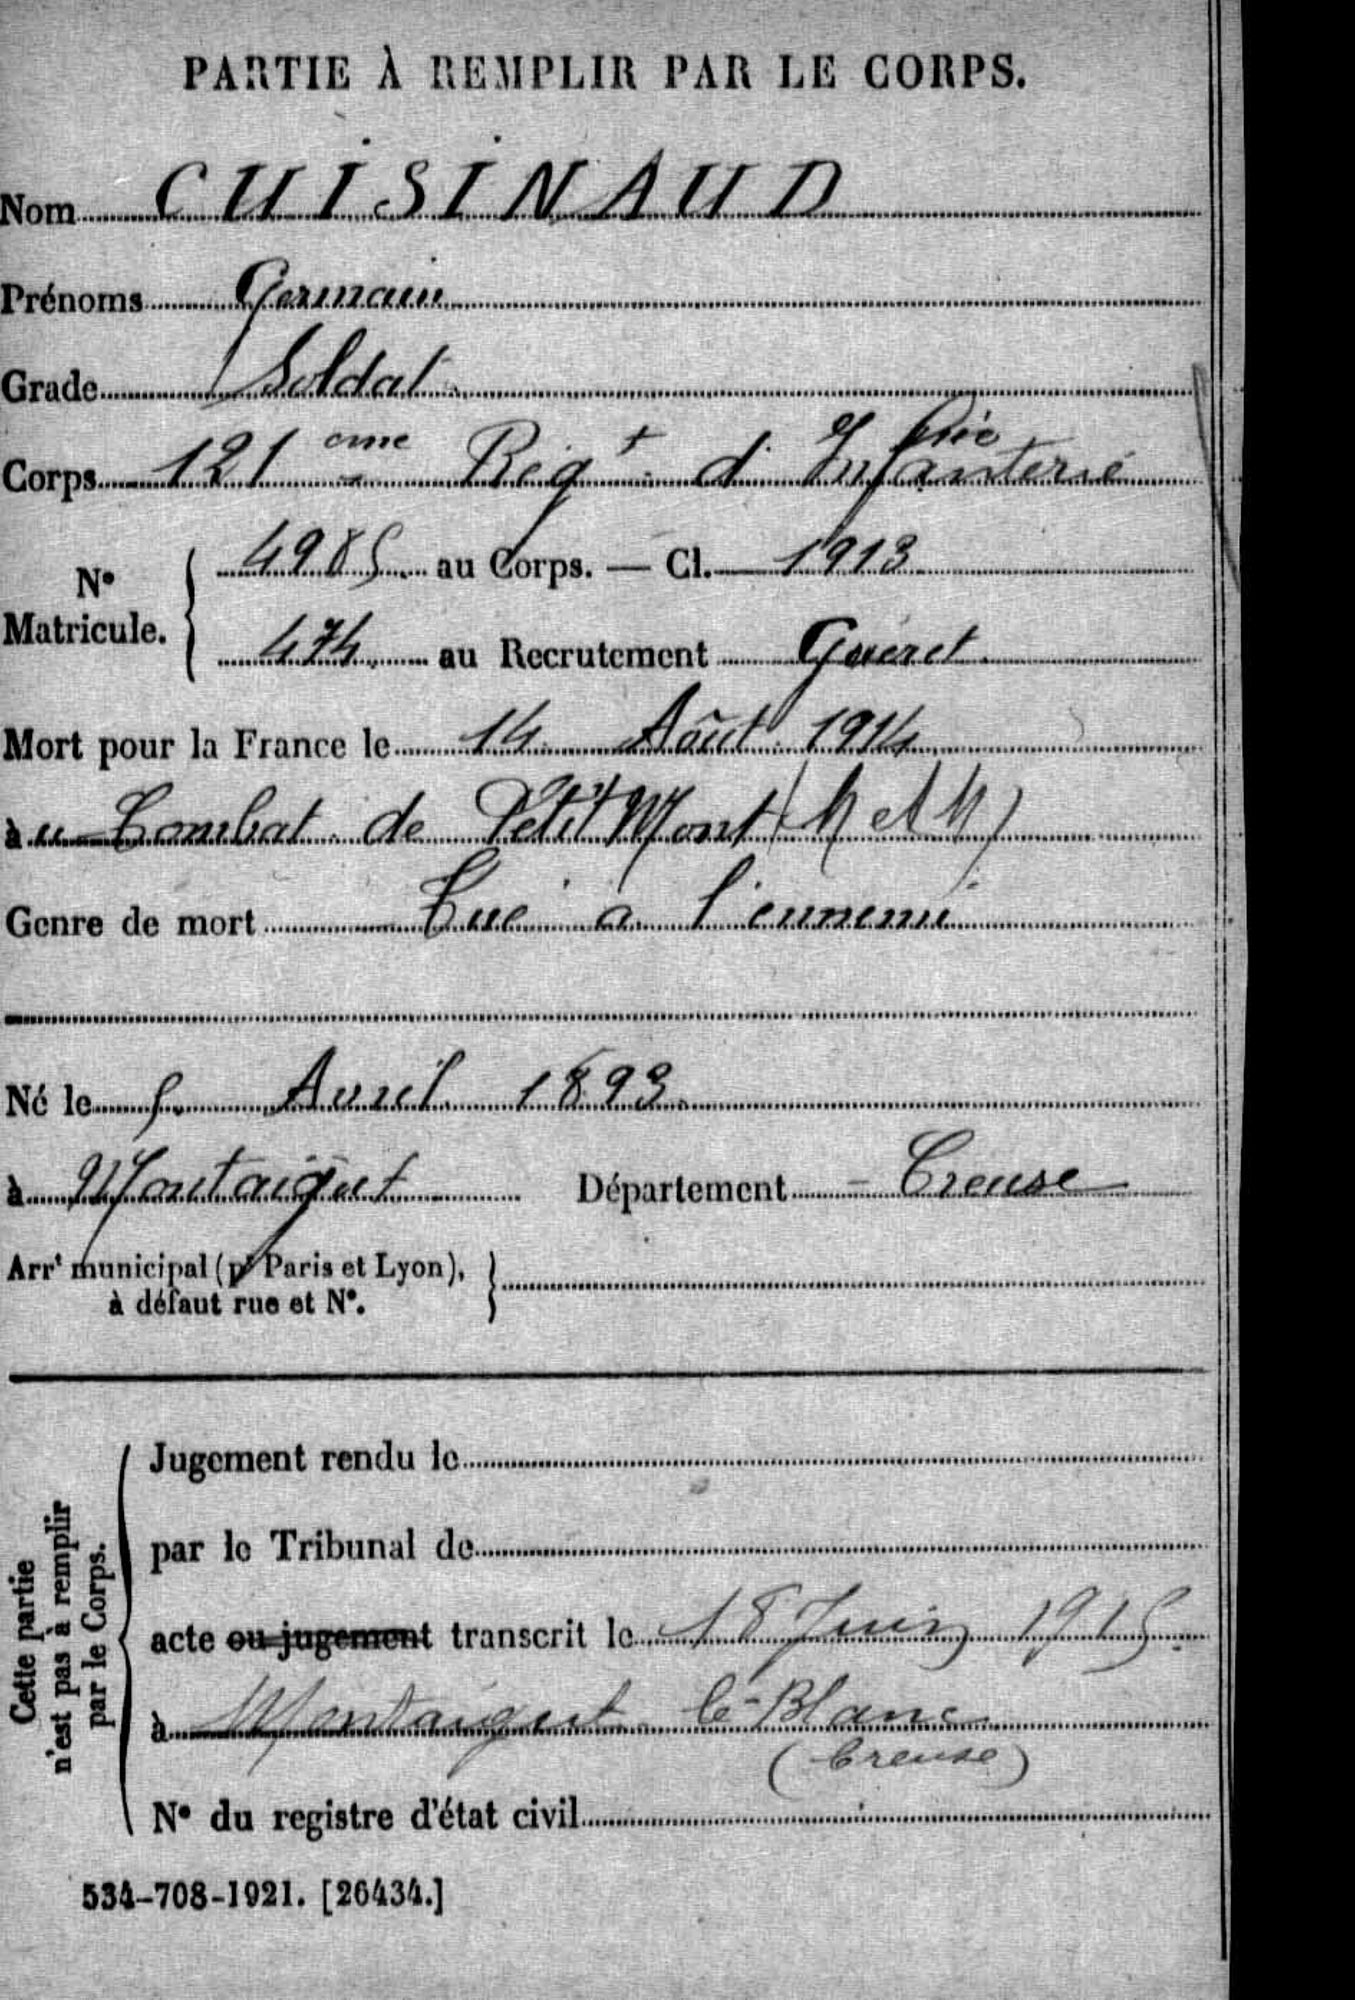 PARTIE À REMPLIR PAR LE CORPS.
Nom CUISINAUD
Prénoms Germain
Grade Soldat
Corps 121 eme Reg t d'Infanterie
N° Matricule. 4985 au Corps. — Cl. 1913
474 au Recrutement Guéret
Mort pour la France le 14 Août 1914
au Combat de Petit Mont (M et M)
Genre de mort Tué a l'ennemi
Né le 5 Avril 1893
à Montaigut Département Creuse
Arrt municipal (pr Paris et Lyon),
à défaut rue et N°.
Cette partie
n'est pas à remplir
par le Corps.
Jugement rendu le
par le Tribunal de
acte ou jugement transcrit le 18 Juin 1915.
à Montaigut le-Blanc
(Creuse)
N° du registre d'état civil
534-708-1921. [26434.]